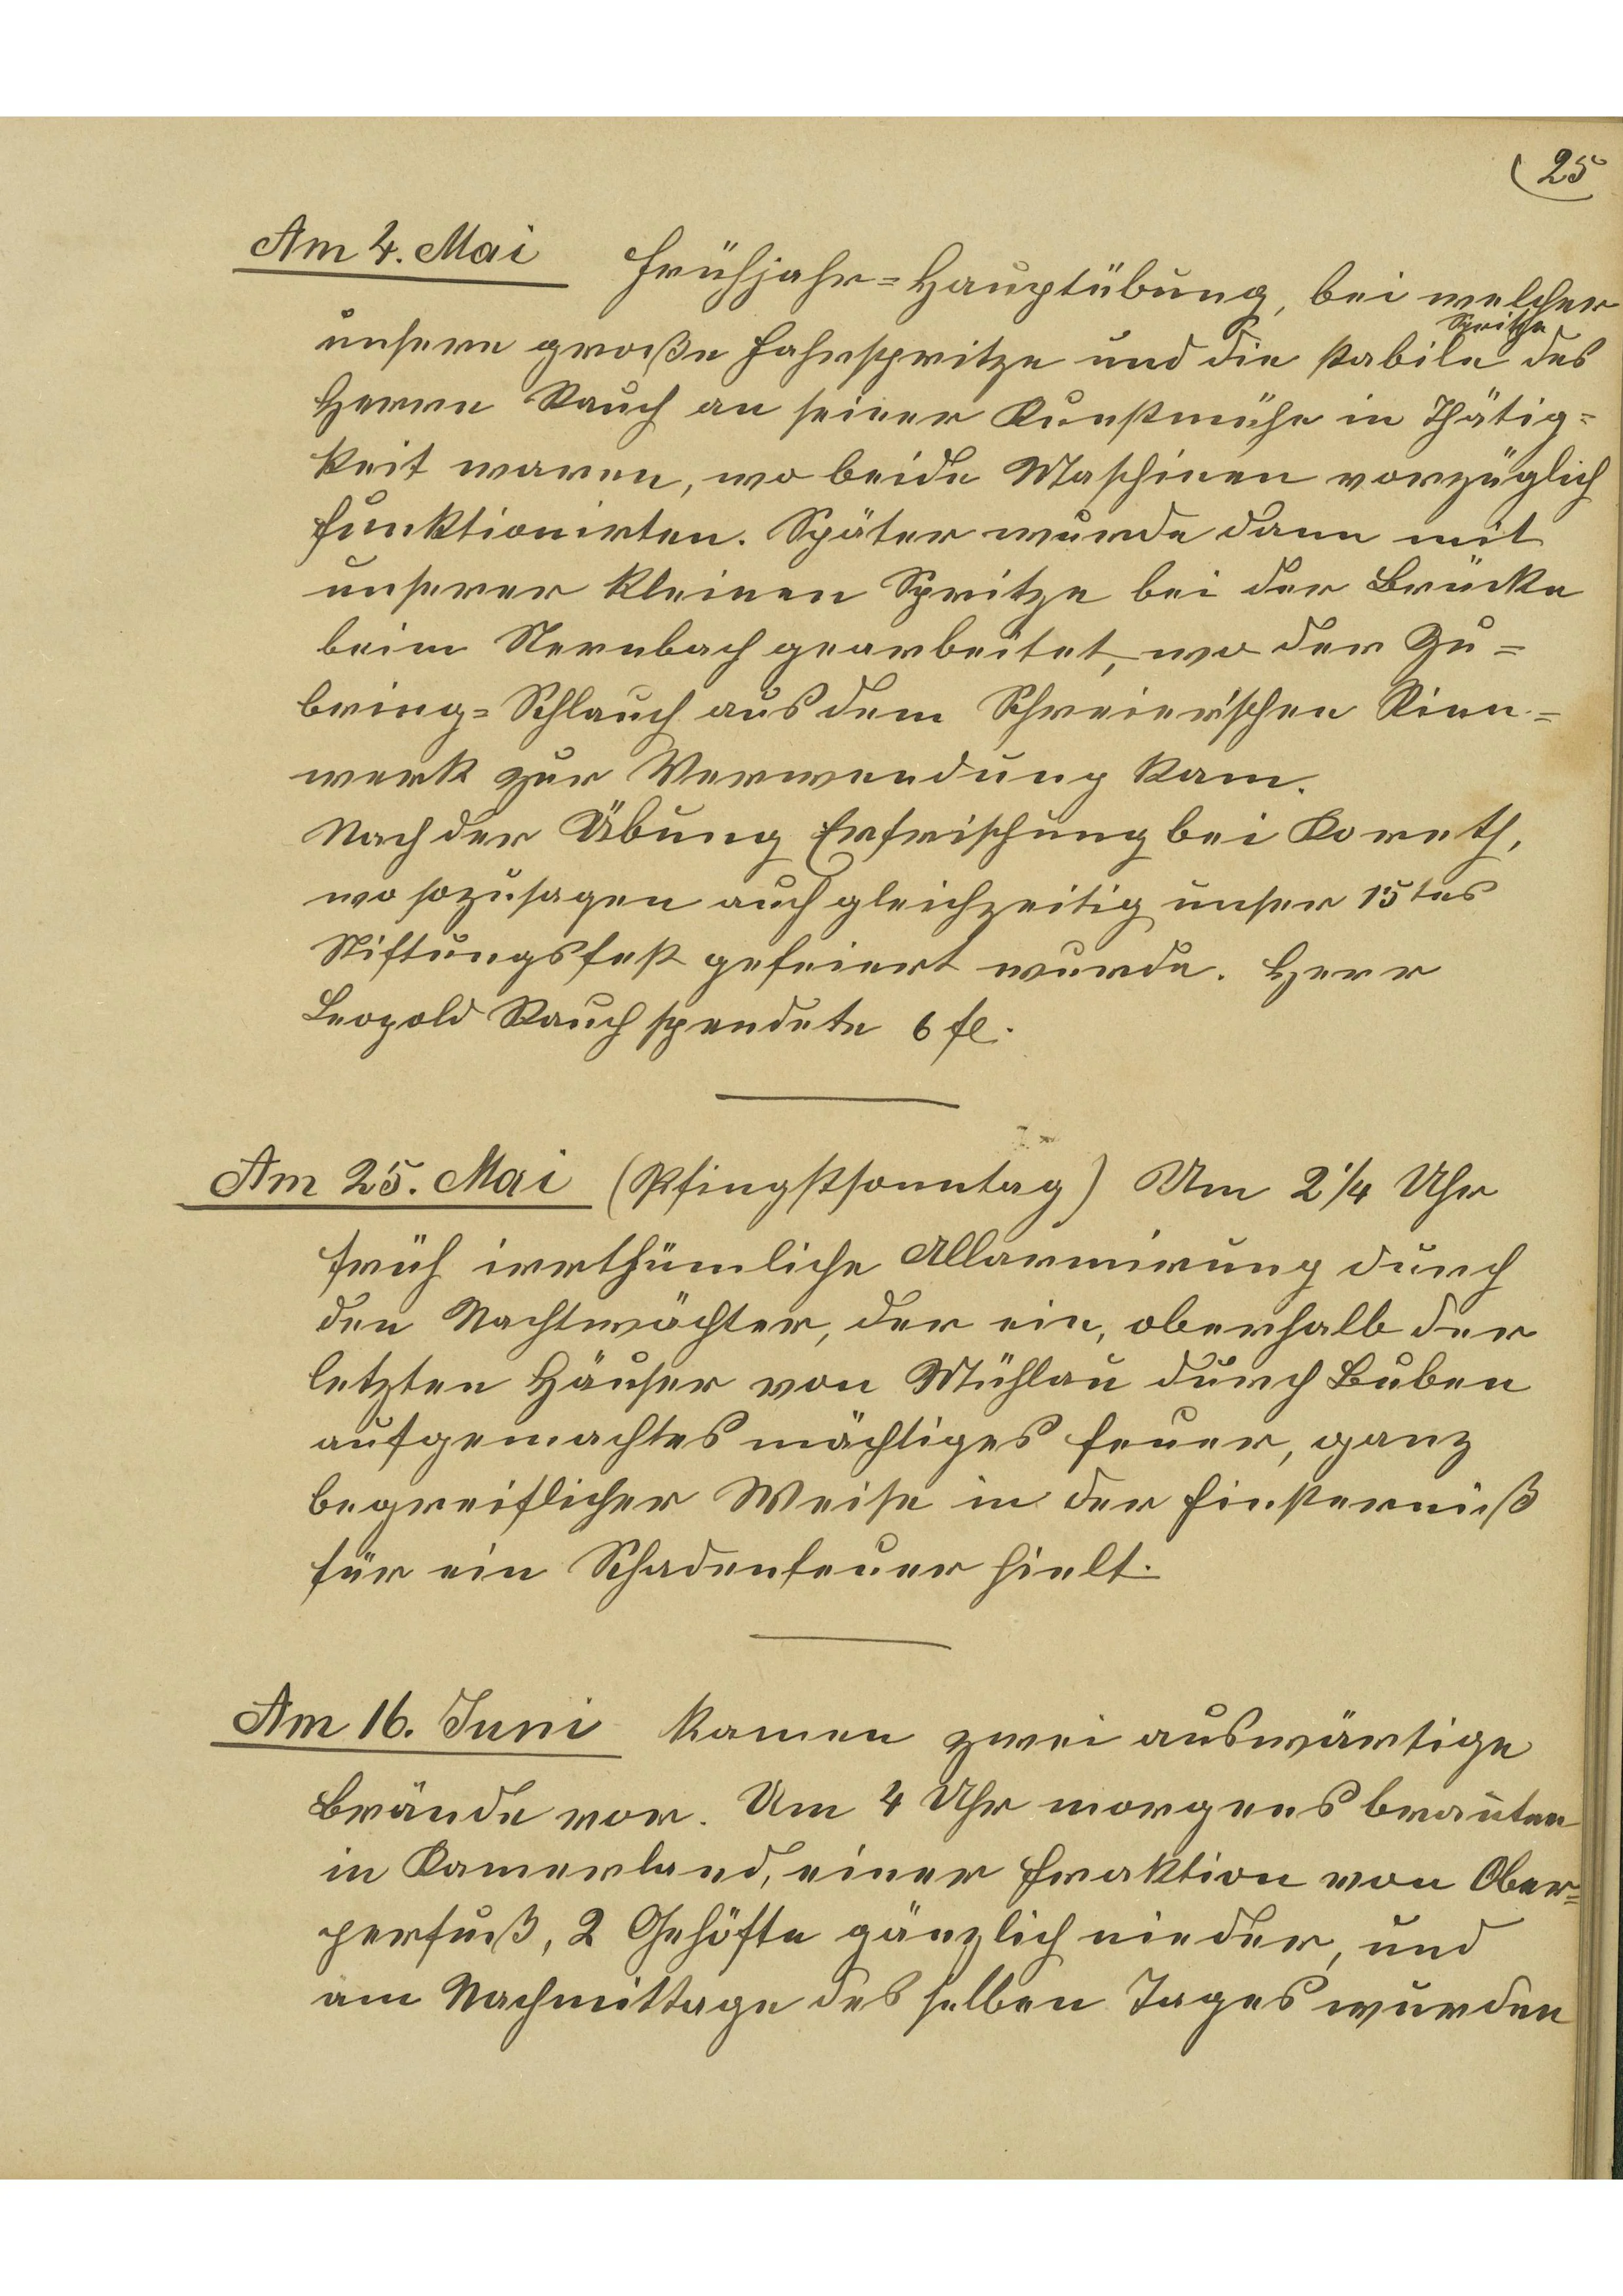 25
Am 4. Mai Frühjahr=Hauptübung, bei welcher
unsere große Fahrspritze und die stabile Spritze des
Herrn Rauch an seiner Kunstmühe in Thätig=
keit waren, wo beide Maschinen vorzüglich
funktionirten. Später wurde dann mit
unserer kleinen Spritze bei der Brücke
beim Sternbach gearbeitet, wo der Zu=
bring=Schlauch aus dem Schreier'schen Rinn=
werk zur Verwendung kam.
Nach der Übung Erfrischung bei Koreth,
wo sozusagen auch gleichzeitig unser 15tes
Stiftungsfest gefeiert wurde. Herr
Leopold Rauch spendete 6 fl.
Am 25. Mai (Pfingstsonntag) Um 2 1/4 Uhr
früh irrthümliche Allarmirung durch
den Nachtwächter, der ein, oberhalb der
letzten Häuser von Mühlau durch Buben
aufgemachtes mächtiges Feuer, ganz
begreiflicher Weise in der Finsterniß
für ein Schadenfeuer hielt.
Am 16. Juni kamen zwei auswärtige
Brände vor. Um 4 Uhr morgens branten
in Kamerland, einer Fraktion von Ober=
perfuß, 2 Gehöfte gänzlich nieder, und
am Nachmittage desselben Tages wurden